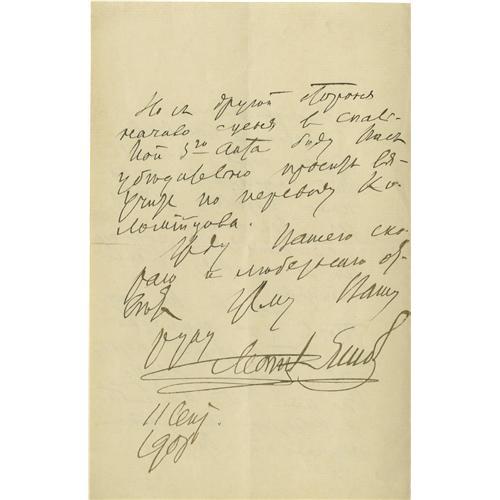 Но съ другой стороны
начало сцены в спаль-
ной 3го акта буду Васъ
убедительно просить вы-
учить по переводу Ко-
ломійцова.
Жду Вашего ско-
раго и любезнаго от-
вѣта Жму Вашу
руку
11 Сент.